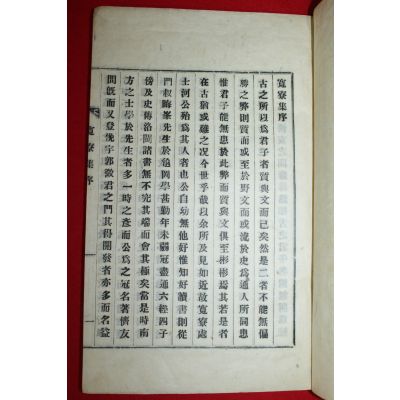 寬寮集序
古之所以爲君子者質與文而已矣然是二者不能無偏
勝之弊則質而或至於野文而或流於史爲通人所同患
惟君子能無患於此弊而質與文俱至彬彬焉若是者
在古猶或難之况今世乎哉以余所及見如近故寬寮處
士河公殆爲其人者也公自幼無他好惟知好讀書則從
門叔晦峯先生於龜岡學甚勤年未弱冠盡通六經四子
傍及史傳洛閩諸書無不究其端而會其極矣當是時南
方之士學於先生者多一時之彥而公爲之冠名著儕友
間旣而又登俛宇郭徵君之門其得開發者亦多而名益
寬寮集序